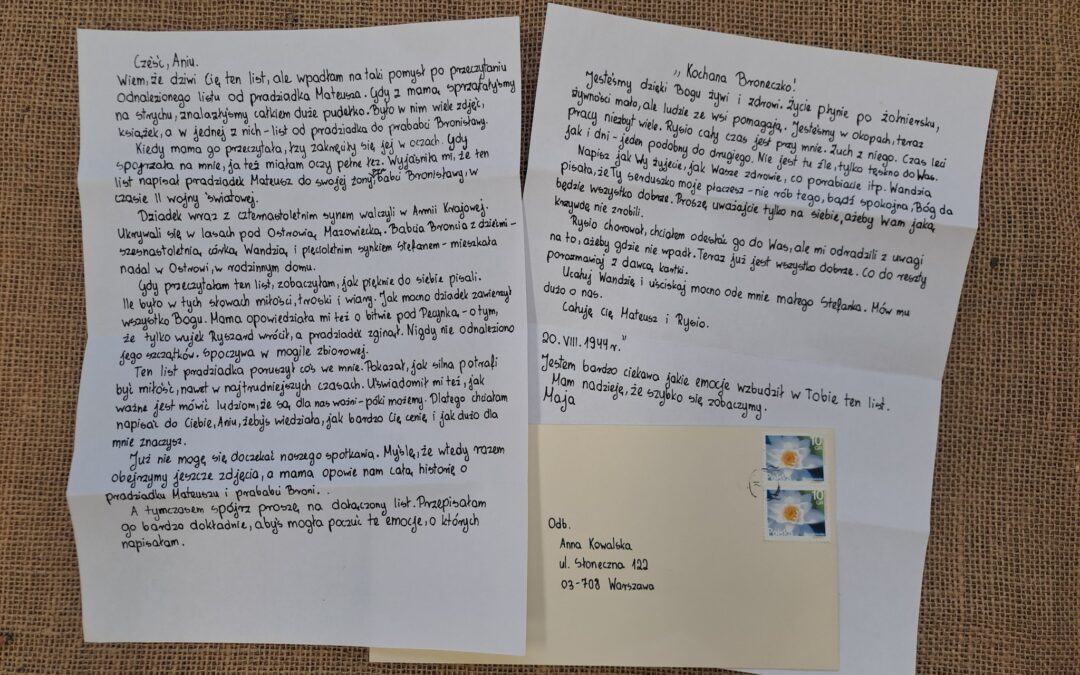 Cześć, Aniu.
Wiem, że dziwi Cię ten list, ale wpadłam na taki pomysł po przeczytaniu
odnalezionego listu od pradziadka Mateusza. Gdy z mamą sprzątałyśmy
na strychu, znalazłyśmy całkiem duże pudełko. Było w nim wiele zdjęć,
książek, a w jednej z nich - list od pradziadka do prababci Bronisławy.
Kiedy mama go przeczytała, łzy zakręciły się jej w oczach. Gdy
spojrzała na mnie, ja też miałam oczy pełne łez. Wyjaśniła mi, że ten
list napisał pradziadek Mateusz do swojej żony, babci Bronisławy, w
czasie II wojny światowej.
Dziadek wraz z czternastoletnim synem walczyli w Armii Krajowej.
Ukrywali się w lasach pod Ostrowią Mazowiecką. Babcia Broncia z dziećmi -
szesnastoletnią córką Wandzią i pięcioletnim synkiem Stefanem - mieszkała
nadal w Ostrowi, w rodzinnym domu.
Gdy przeczytałam ten list, zobaczyłam, jak pięknie do siebie pisali.
Ile było w tych słowach miłości, troski i wiary. Jak mocno dziadek zawierzył
wszystko Bogu. Mama opowiedziała mi też o bitwie pod Pecynką - o tym,
że tylko wujek Ryszard wrócił, a pradziadek zginął. Nigdy nie odnaleziono
jego szczątków. Spoczywa w mogile zbiorowej.
Ten list pradziadka poruszył coś we mnie. Pokazał, jak silna potrafi
być miłość, nawet w najtrudniejszych czasach. Uświadomił mi też, jak
ważne jest mówić ludziom, że są dla nas ważni - póki możemy. Dlatego chciałam
napisać do Ciebie, Aniu, żebyś wiedziała, jak bardzo Cię cenię i jak dużo dla
mnie znaczysz.
Już nie mogę się doczekać naszego spotkania. Myślę, że wtedy razem
obejrzymy jeszcze zdjęcia, a mama opowie nam całą historię o
pradziadku Mateuszu i prababci Broni.
A tymczasem spójrz proszę na dołączony list. Przepisałam
go bardzo dokładnie, abyś mogła poczuć te emocje, o których
napisałam.
„Kochana Broneczko!
Jesteśmy dzięki Bogu żywi i zdrowi. Życie płynie po żołniersku,
żywności mało, ale ludzie ze wsi pomagają. Jesteśmy w okopach, teraz
pracy niezbyt wiele. Rysio cały czas jest przy mnie. Zuch z niego. Czas leci
jak i dni - jeden podobny do drugiego. Nie jest tu źle, tylko tęskno do Was.
Napisz jak Wy żyjecie, jak Wasze zdrowie, co porabiacie itp. Wandzia
pisała, że Ty serduszko moje płaczesz - nie rób tego, bądź spokojna, Bóg da
będzie wszystko dobrze. Proszę, uważajcie tylko na siebie, ażeby Wam jaką
krzywdę nie zrobili.
Rysio chorował, chciałem odesłać go do Was, ale mi odradzili z uwagi
na to, ażeby gdzie nie wpadł. Teraz już jest wszystko dobrze. Co do reszty
porozmawiaj z dawcą kartki.
Ucałuj Wandzię i uściskaj mocno ode mnie małego Stefanka. Mów mu
dużo o nas.
Całuję Cię Mateusz i Rysio.
20. VIII. 1944 r."
Jestem bardzo ciekawa jakie emocje wzbudził w Tobie ten list.
Mam nadzieję, że szybko się zobaczymy.
Maja
10
GR
Polska
10
GR
Polska
Odb.
Anna Kowalska
ul. Słoneczna 122
03-708 Warszawa